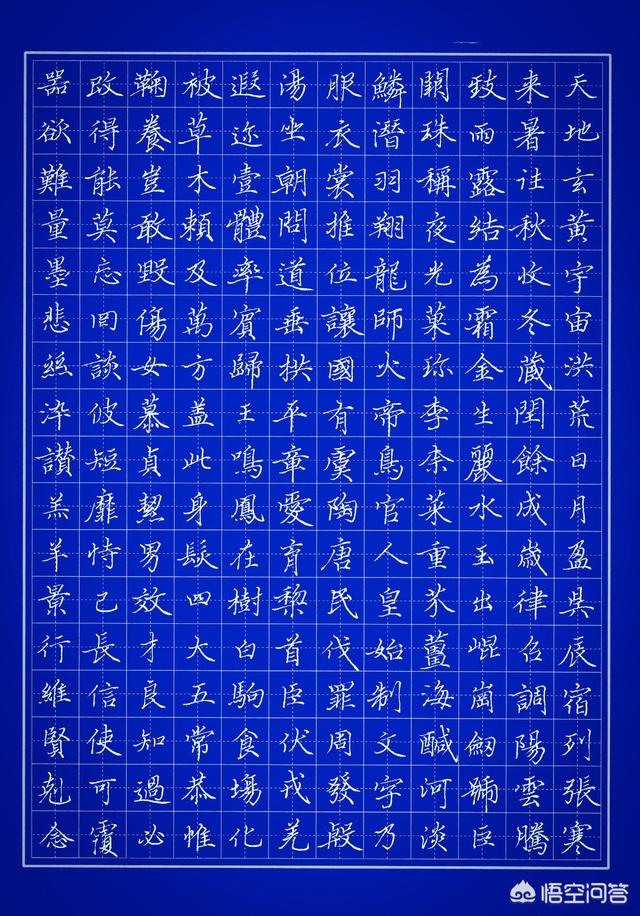 天地玄黄宇宙洪荒日月盈昃辰宿列張寒
来暑往秋收冬藏閏餘成歲律召調陽雲騰
致雨露結為霜金生麗水玉出崐崗劒號巨
闕珠稱夜光菓珍李柰菜重芥薑海鹹河淡
鱗潛羽翔龍師火帝鳥官人皇始制文字乃
服衣裳推位讓國有虞陶唐民伐罪周發殷
湯坐朝問道垂拱平章愛育黎首臣伏戎羌
遐迩壹體率賓歸王鳴鳳在樹白駒食場化
被草木頼及萬方盖此身髮四大五常恭惟
鞠養豈敢毀傷女慕貞絜男效才良知過必
改得能莫忘罔談彼短靡恃己長信使可覆
器欲難量墨悲絲染讃羔羊景行維賢剋念
悟空问答